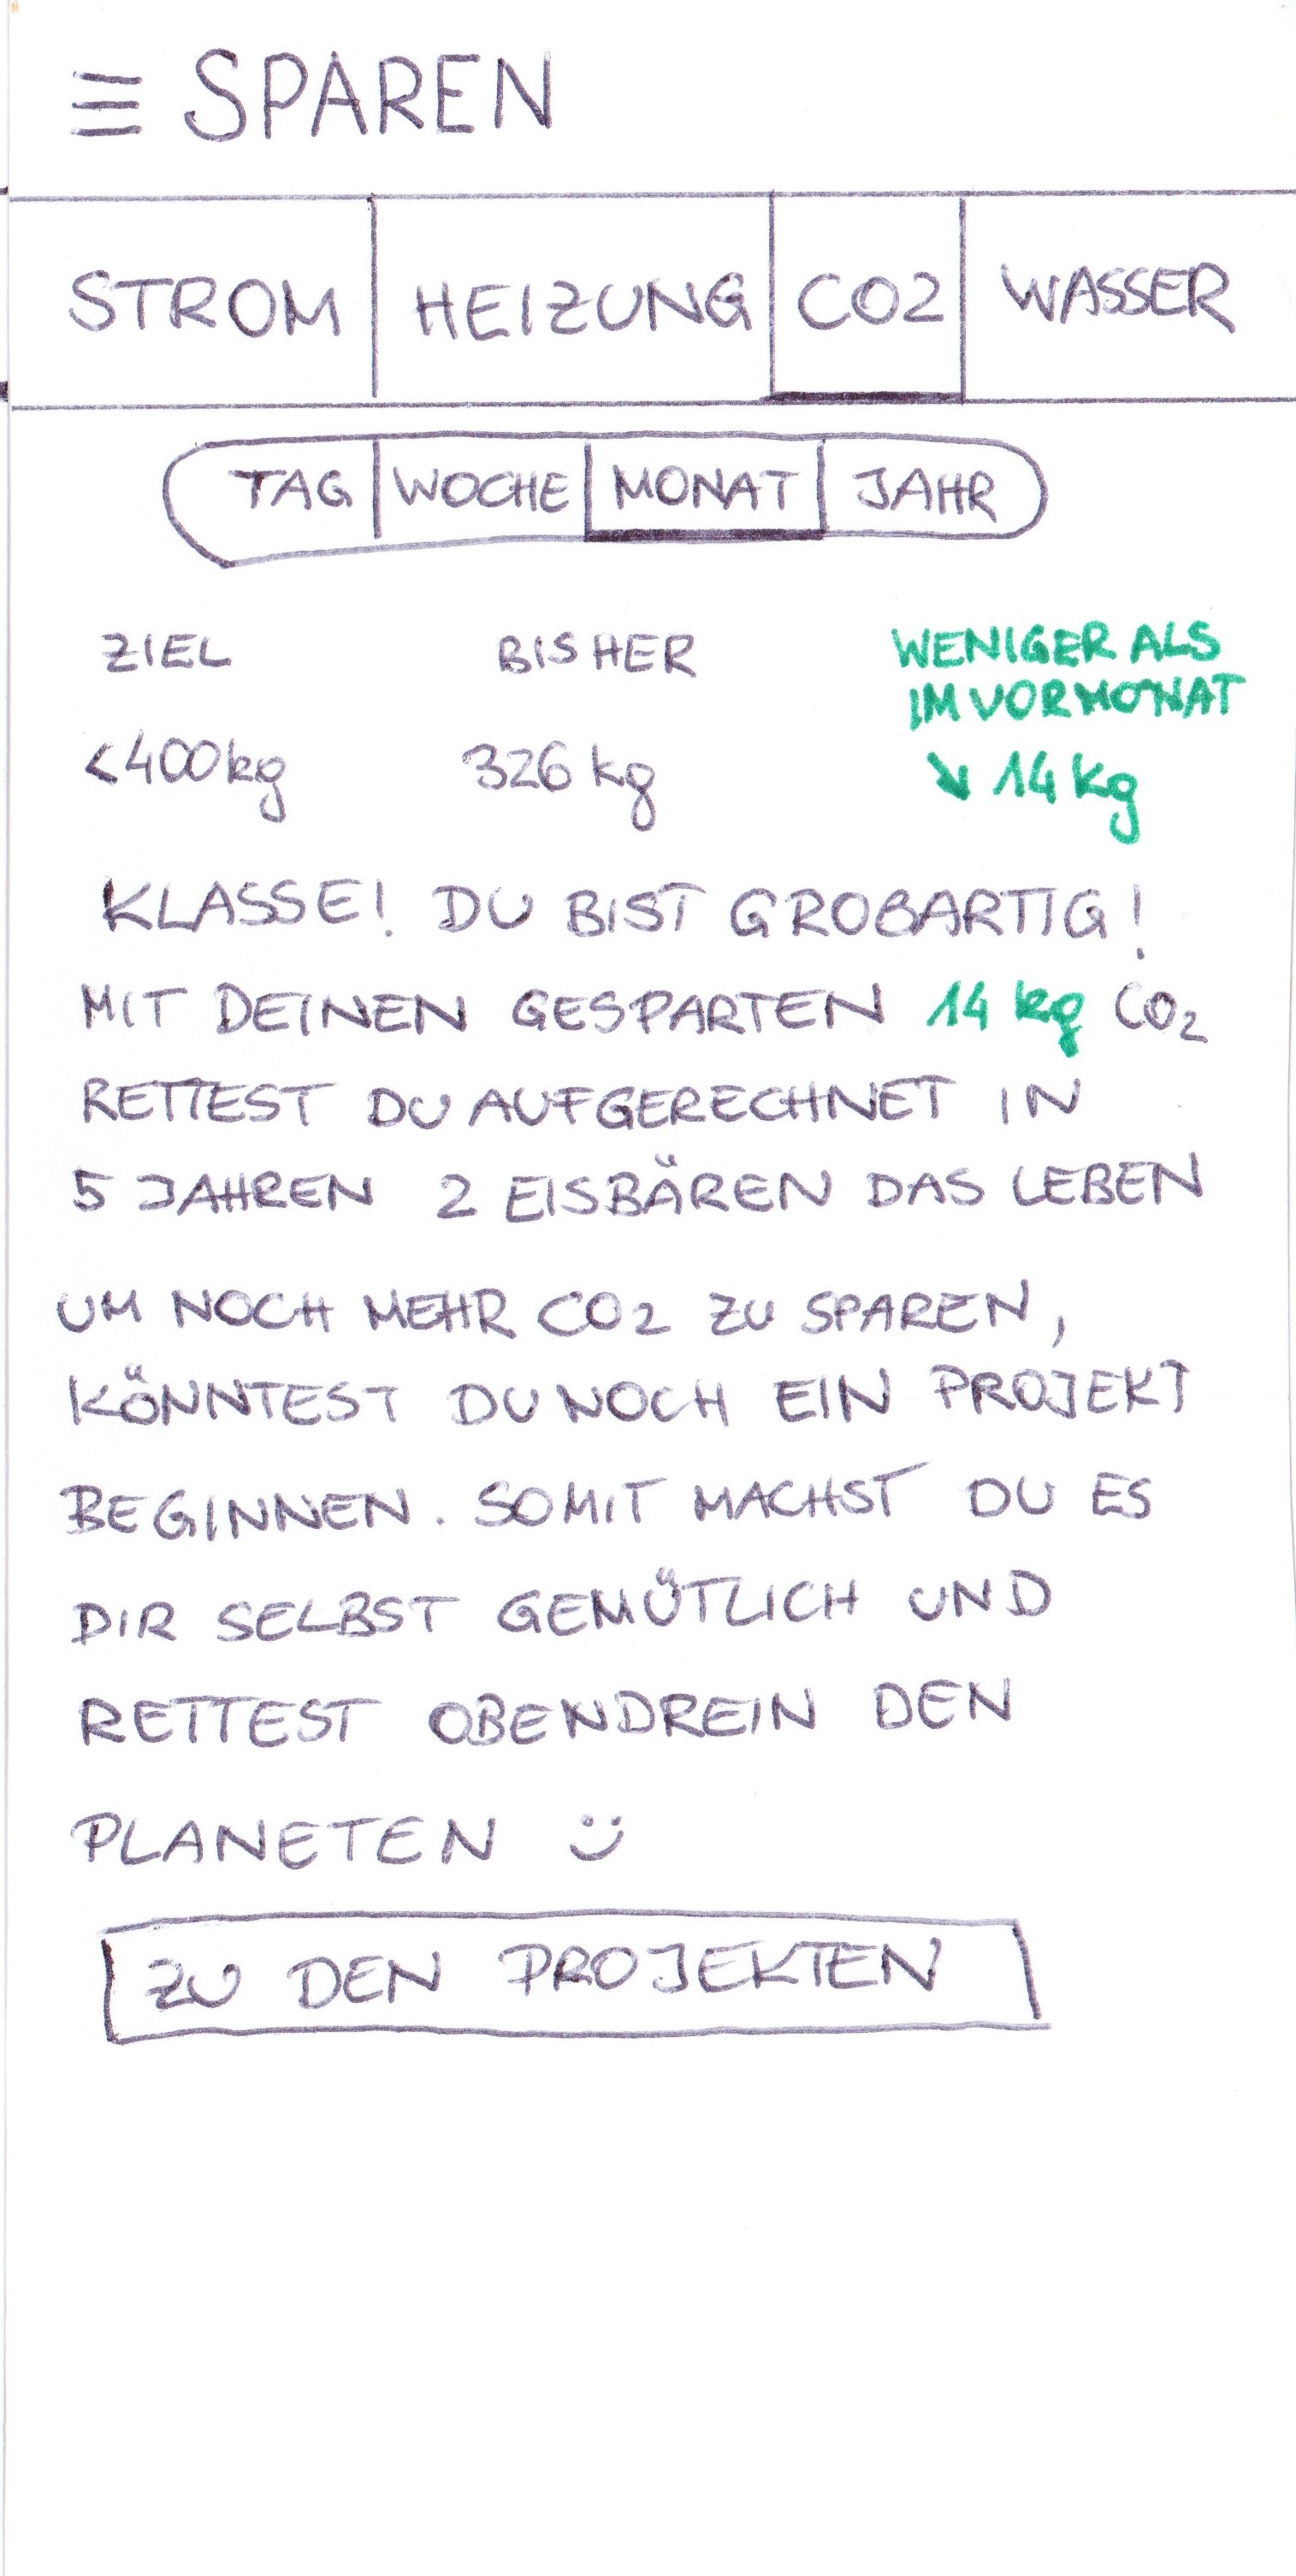 SPAREN
STROM HEIZUNG CO2 WASSER
TAG WOCHE MONAT JAHR
ZIEL BISHER WENIGER ALS
IM VORMONAT
<400kg 326 kg ↘ 14 kg
KLASSE! DU BIST GROßARTIG!
MIT DEINEN GESPARTEN 14 kg CO₂
RETTEST DU AUFGERECHNET IN
5 JAHREN 2 EISBÄREN DAS LEBEN
UM NOCH MEHR CO2 ZU SPAREN,
KÖNNTEST DU NOCH EIN PROJEKT
BEGINNEN. SOMIT MACHST DU ES
DIR SELBST GEMÜTLICH UND
RETTEST OBENDREIN DEN
PLANETEN ü
ZU DEN PROJEKTEN